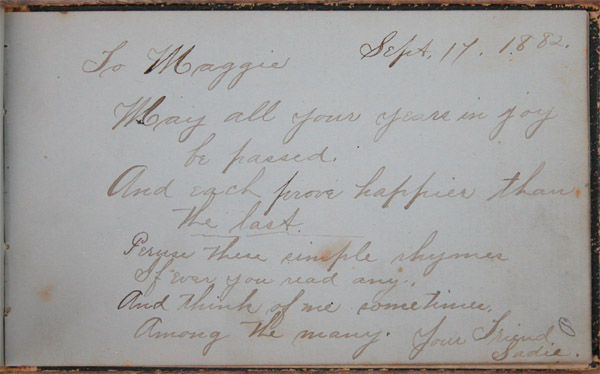 Sept. 17. 1882.
To Maggie
May all your years in joy
be passed.
And each prove happier than
the last.
Peruse these simple rhymes
If ever you read any,
And think of me sometimes,
Among the many. Your Friend
Sadie.